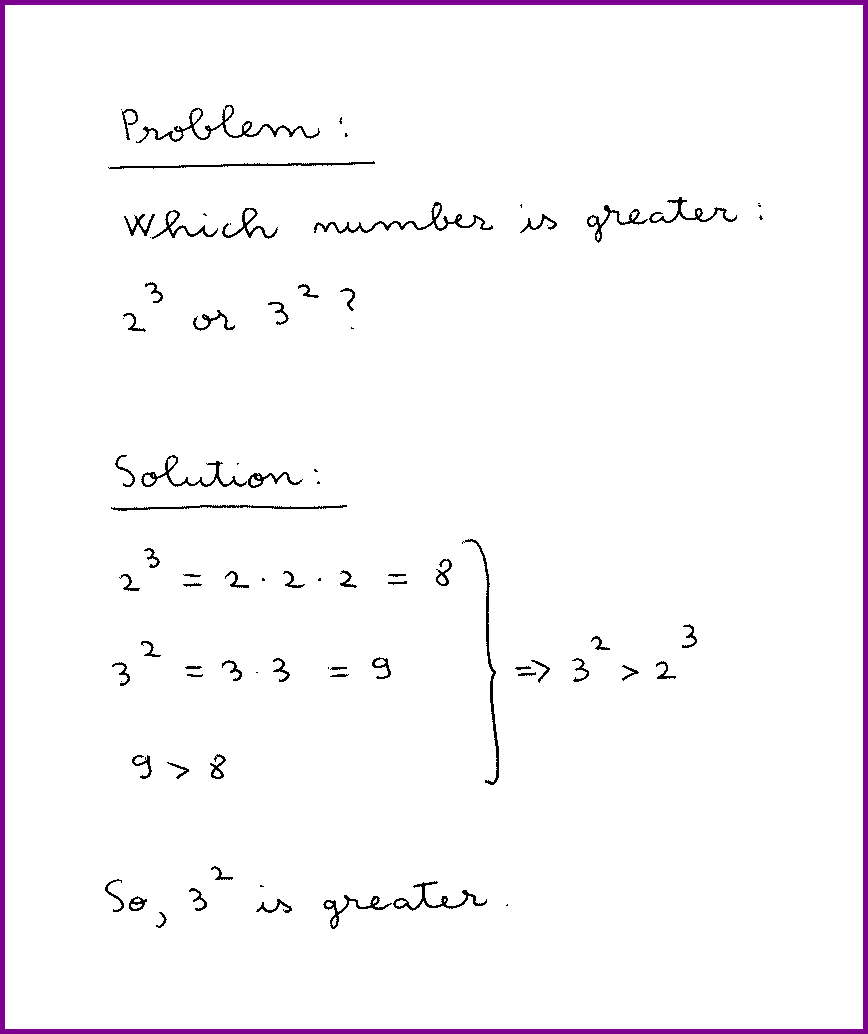 Problem:
Which number is greater:
2³ or 3² ?
Solution:
2³ = 2 · 2 · 2 = 8
3² = 3 · 3 = 9
⇒ 3² > 2³
9 > 8
So, 3² is greater.